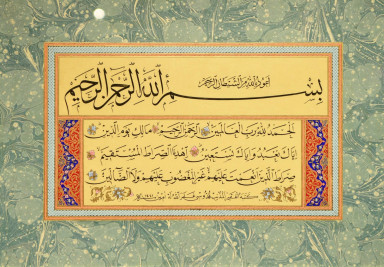 اعوذ بالله من الشيطان الرجيم
بسم الله الرحمن الرحيم
الحمد لله رب العالمين الرحمن الرحيم مالك يوم الدين
اياك نعبد واياك نستعين اهدنا الصراط المستقيم
صراط الذين انعمت عليهم غير المغضوب عليهم ولا الضالين